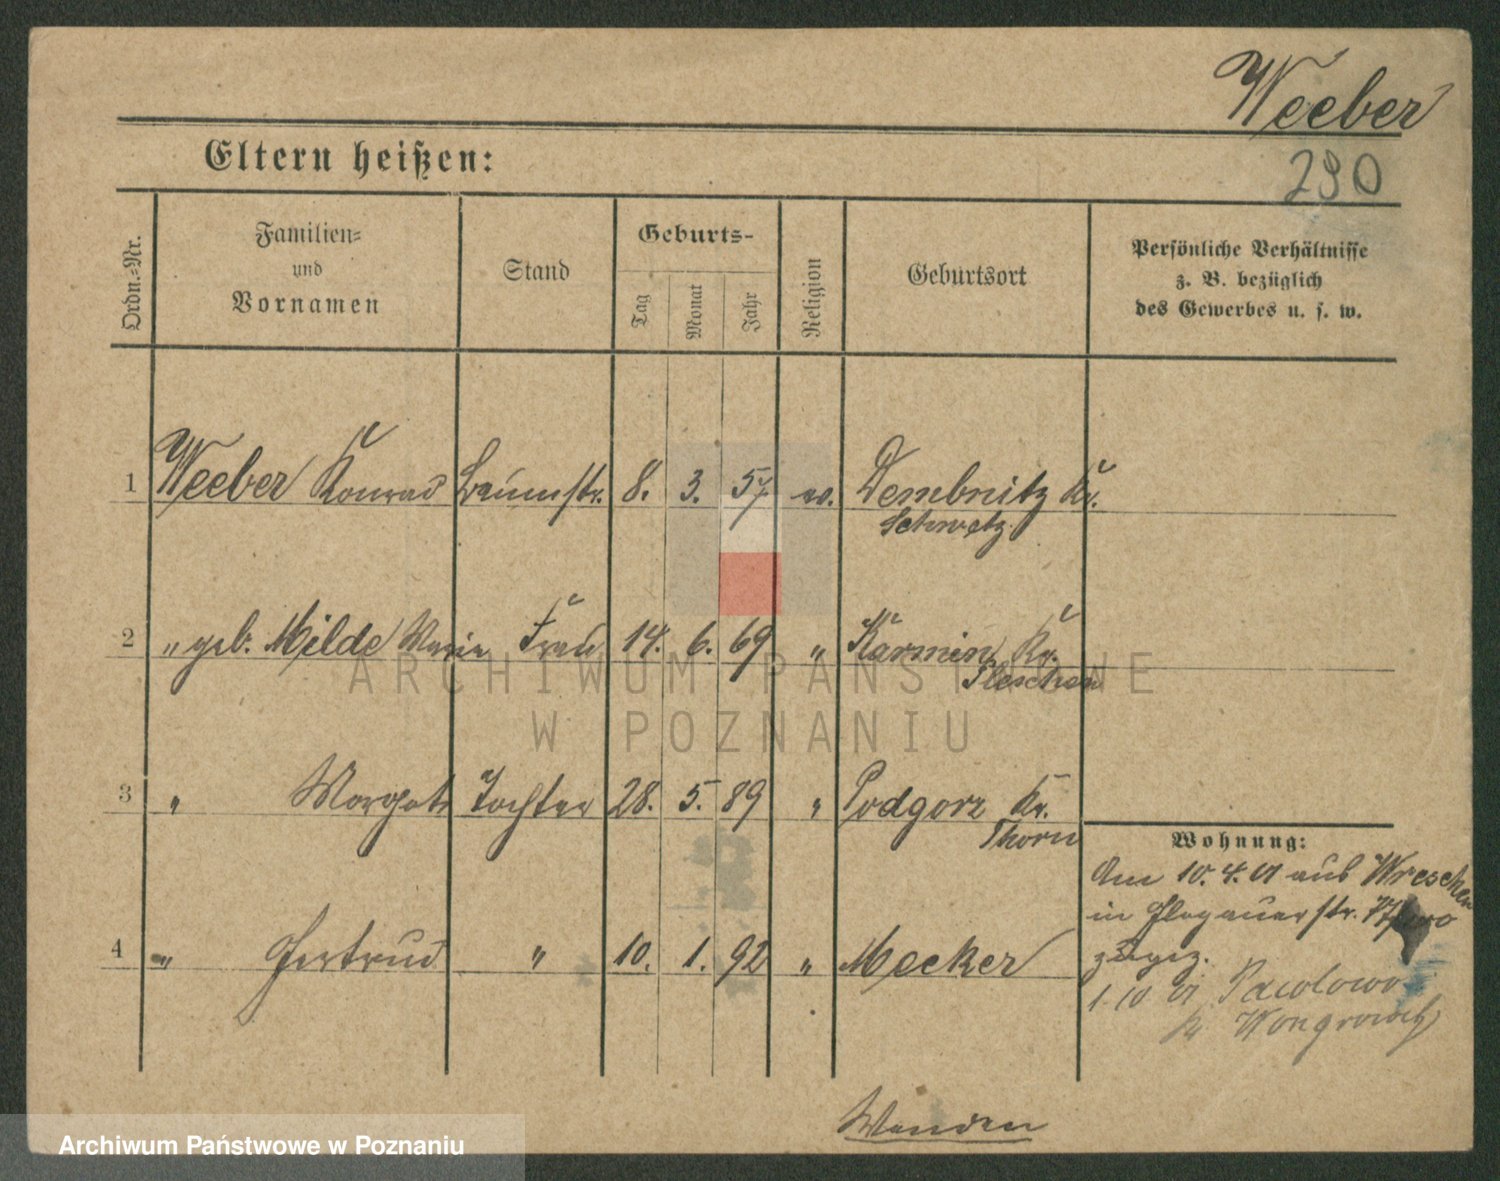 Weeber
Eltern heißen:
290
Ordn.-Nr.
Familien-
und
Vornamen
Stand
Geburts-
Tag
Monat
Jahr
Religion
Geburtsort
Persönliche Verhältnisse
z. B. bezüglich
des Gewerbes u. s. w.
1 Weeber Konrad 8. 3. 57 ev. Dembnitz Kr.
Schwetz
2 " geb. Milde Marie Frau 14. 6. 69 " Karmin Kr.
Pleschen
3 " Margate Tochter 28. 5. 89 " Podgorz Kr.
Thorn
4 " Gertrud " 10. 1. 92 " Mocker
Wohnung:
Am 10. 4. 01 aus Wreschen
in Glogauerstr.
zugez.
1 10 01 Pawlowo
Kr Wongrowitz
Wenden
ARCHIWUM PAŃSTWOWE
W POZNANIU
Archiwum Państwowe w Poznaniu